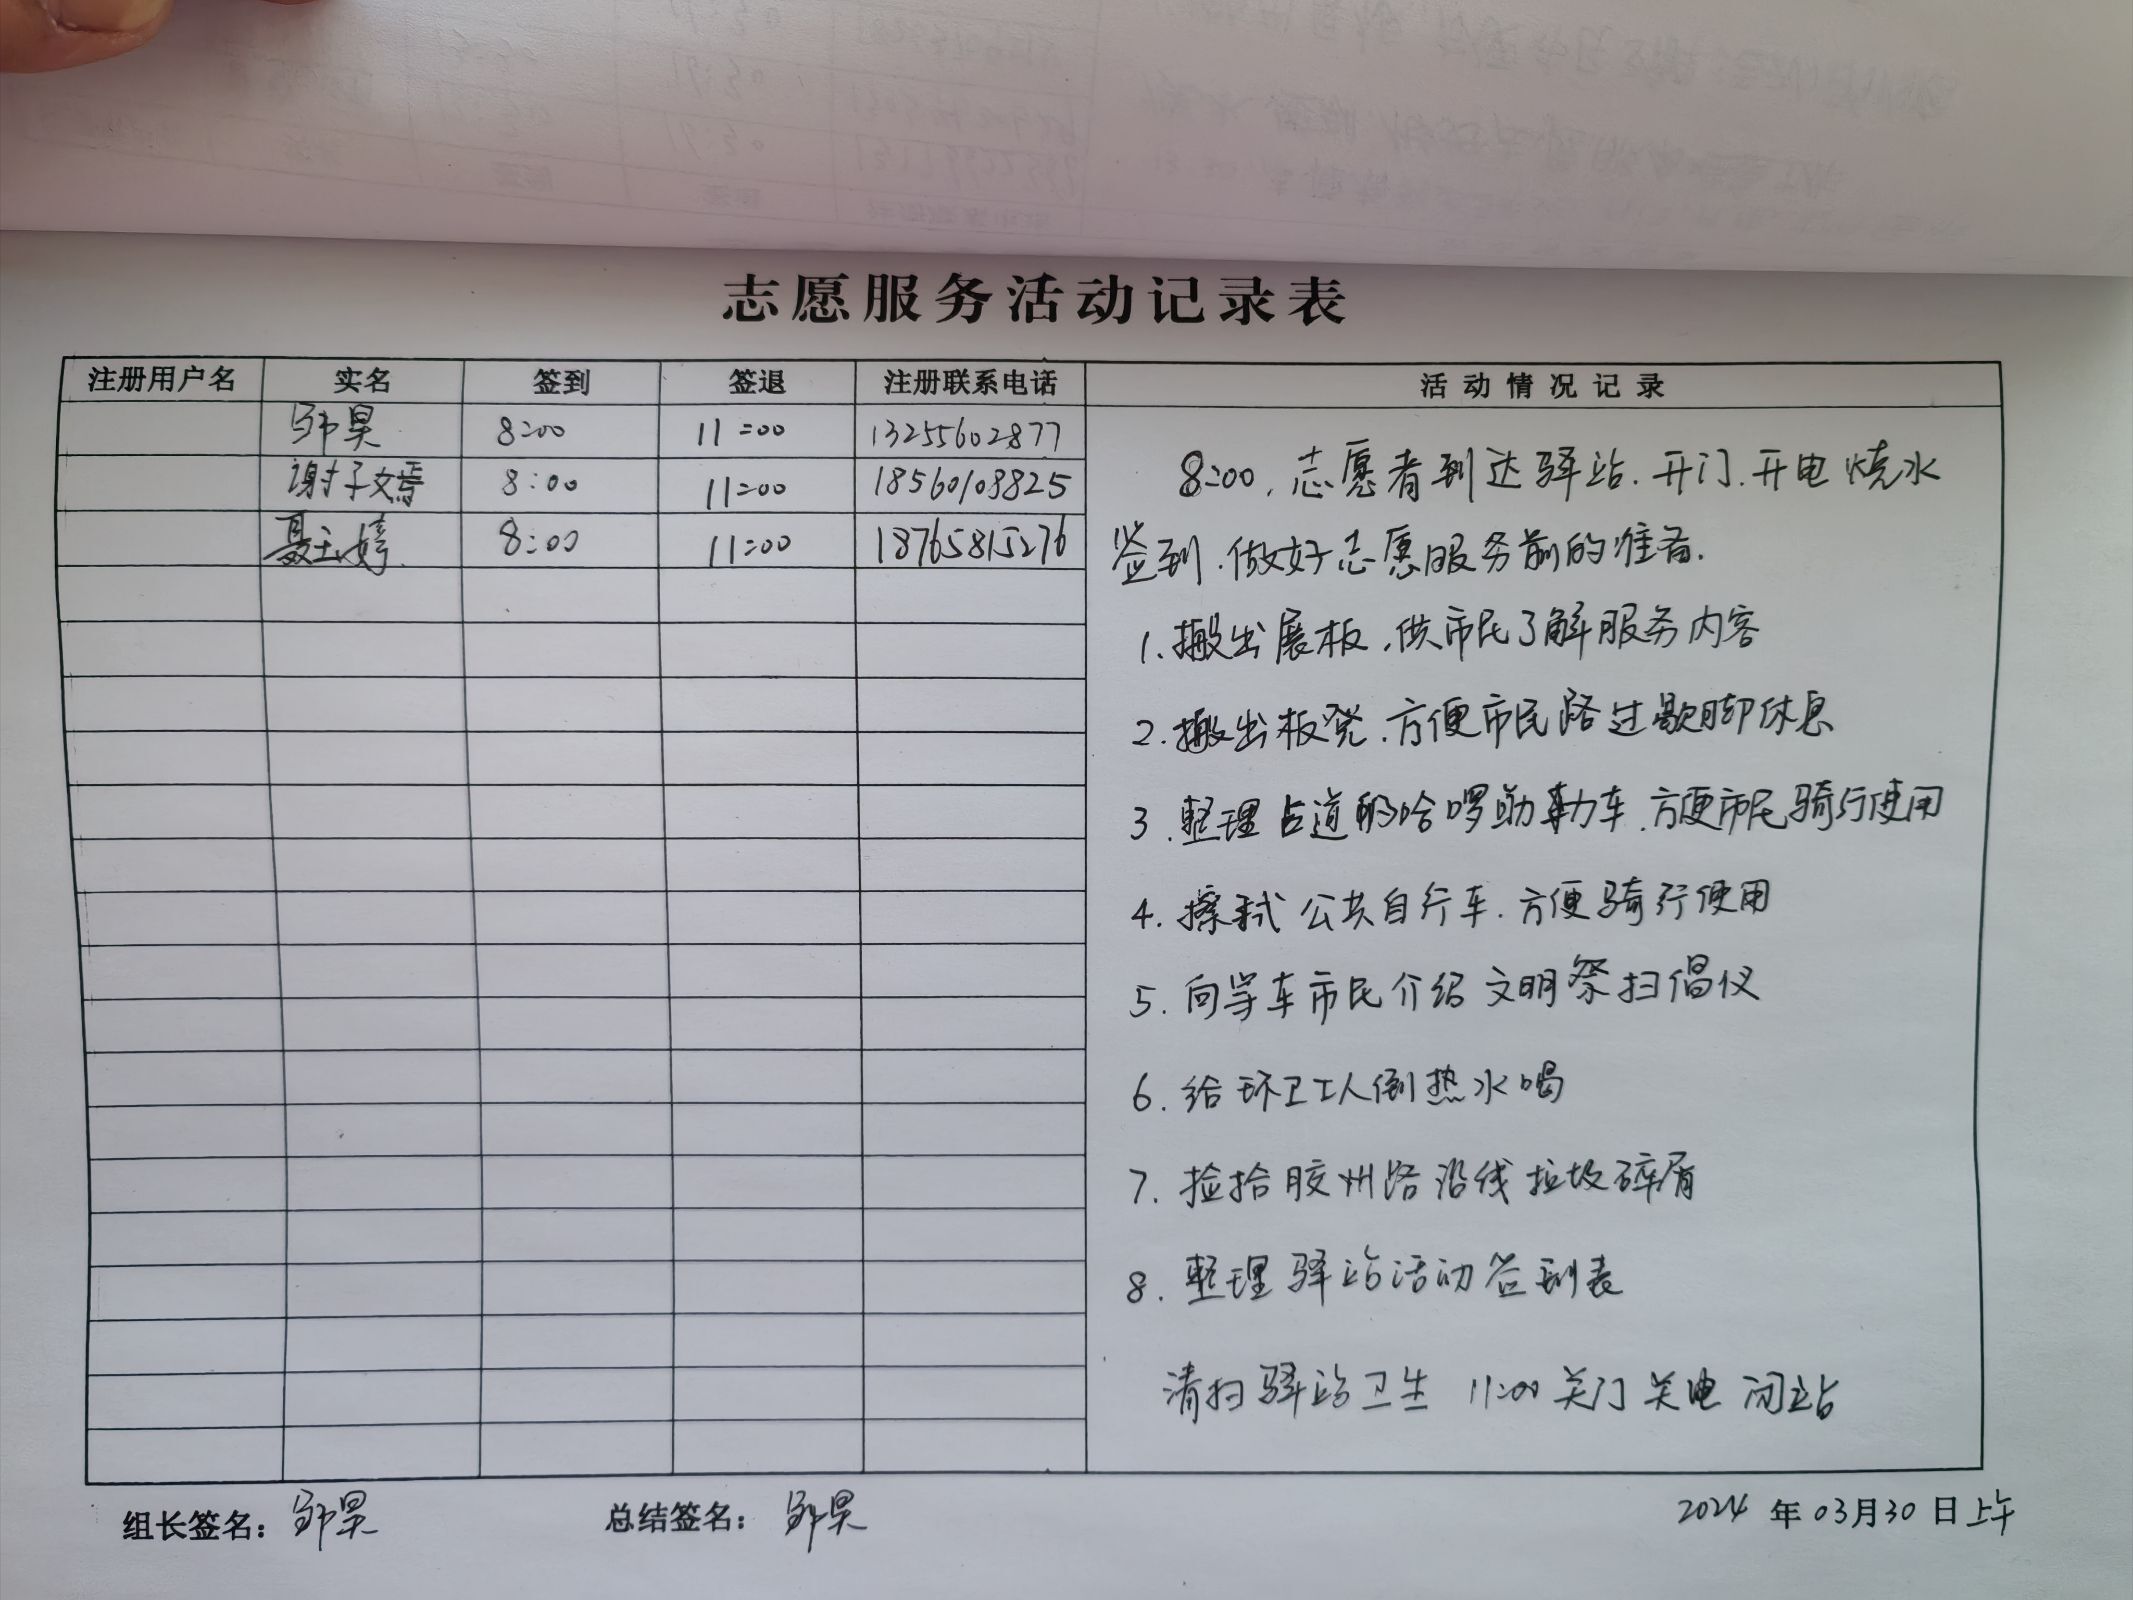 志愿服务活动记录表
注册用户名 实名 签到 签退 注册联系电话 活动情况记录
邹昊 8:00 11:00 13255602877
谢子嫣 8:00 11:00 18560108825
聂玉婷 8:00 11:00 18765815276
8:00,志愿者到达驿站.开门.开电烧水
签到.做好志愿服务前的准备.
1.搬出展板.供市民了解服务内容
2.搬出板凳.方便市民路过歇脚休息
3.整理占道的哈啰助力车.方便市民骑行使用
4.擦拭公共自行车.方便骑行使用
5.向等车市民介绍文明祭扫倡仪
6.给环卫工人倒热水喝
7.捡拾胶州路沿线垃圾碎屑
8.整理驿站活动签到表
清扫驿站卫生 11:00关门关电闭站
组长签名:邹昊 总结签名:邹昊 2024年03月30日上午